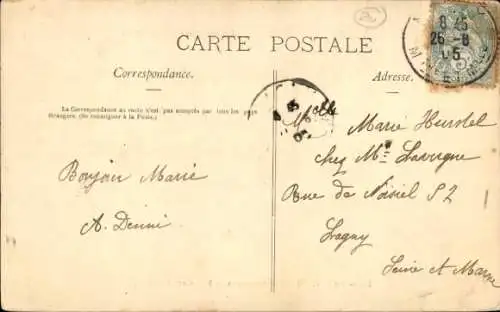 CARTE POSTALE
Correspondance.
Adresse.
La Correspondance au recto n'est pas acceptée par tous les pays
étrangers. (Se renseigner à la Poste.)
8 45
26 -8
05
Melle
Marie
chez Me Lavergne
Rue de Noisiel 52
Lagny
Seine et Marne
Bonjour Marie
A. Denni